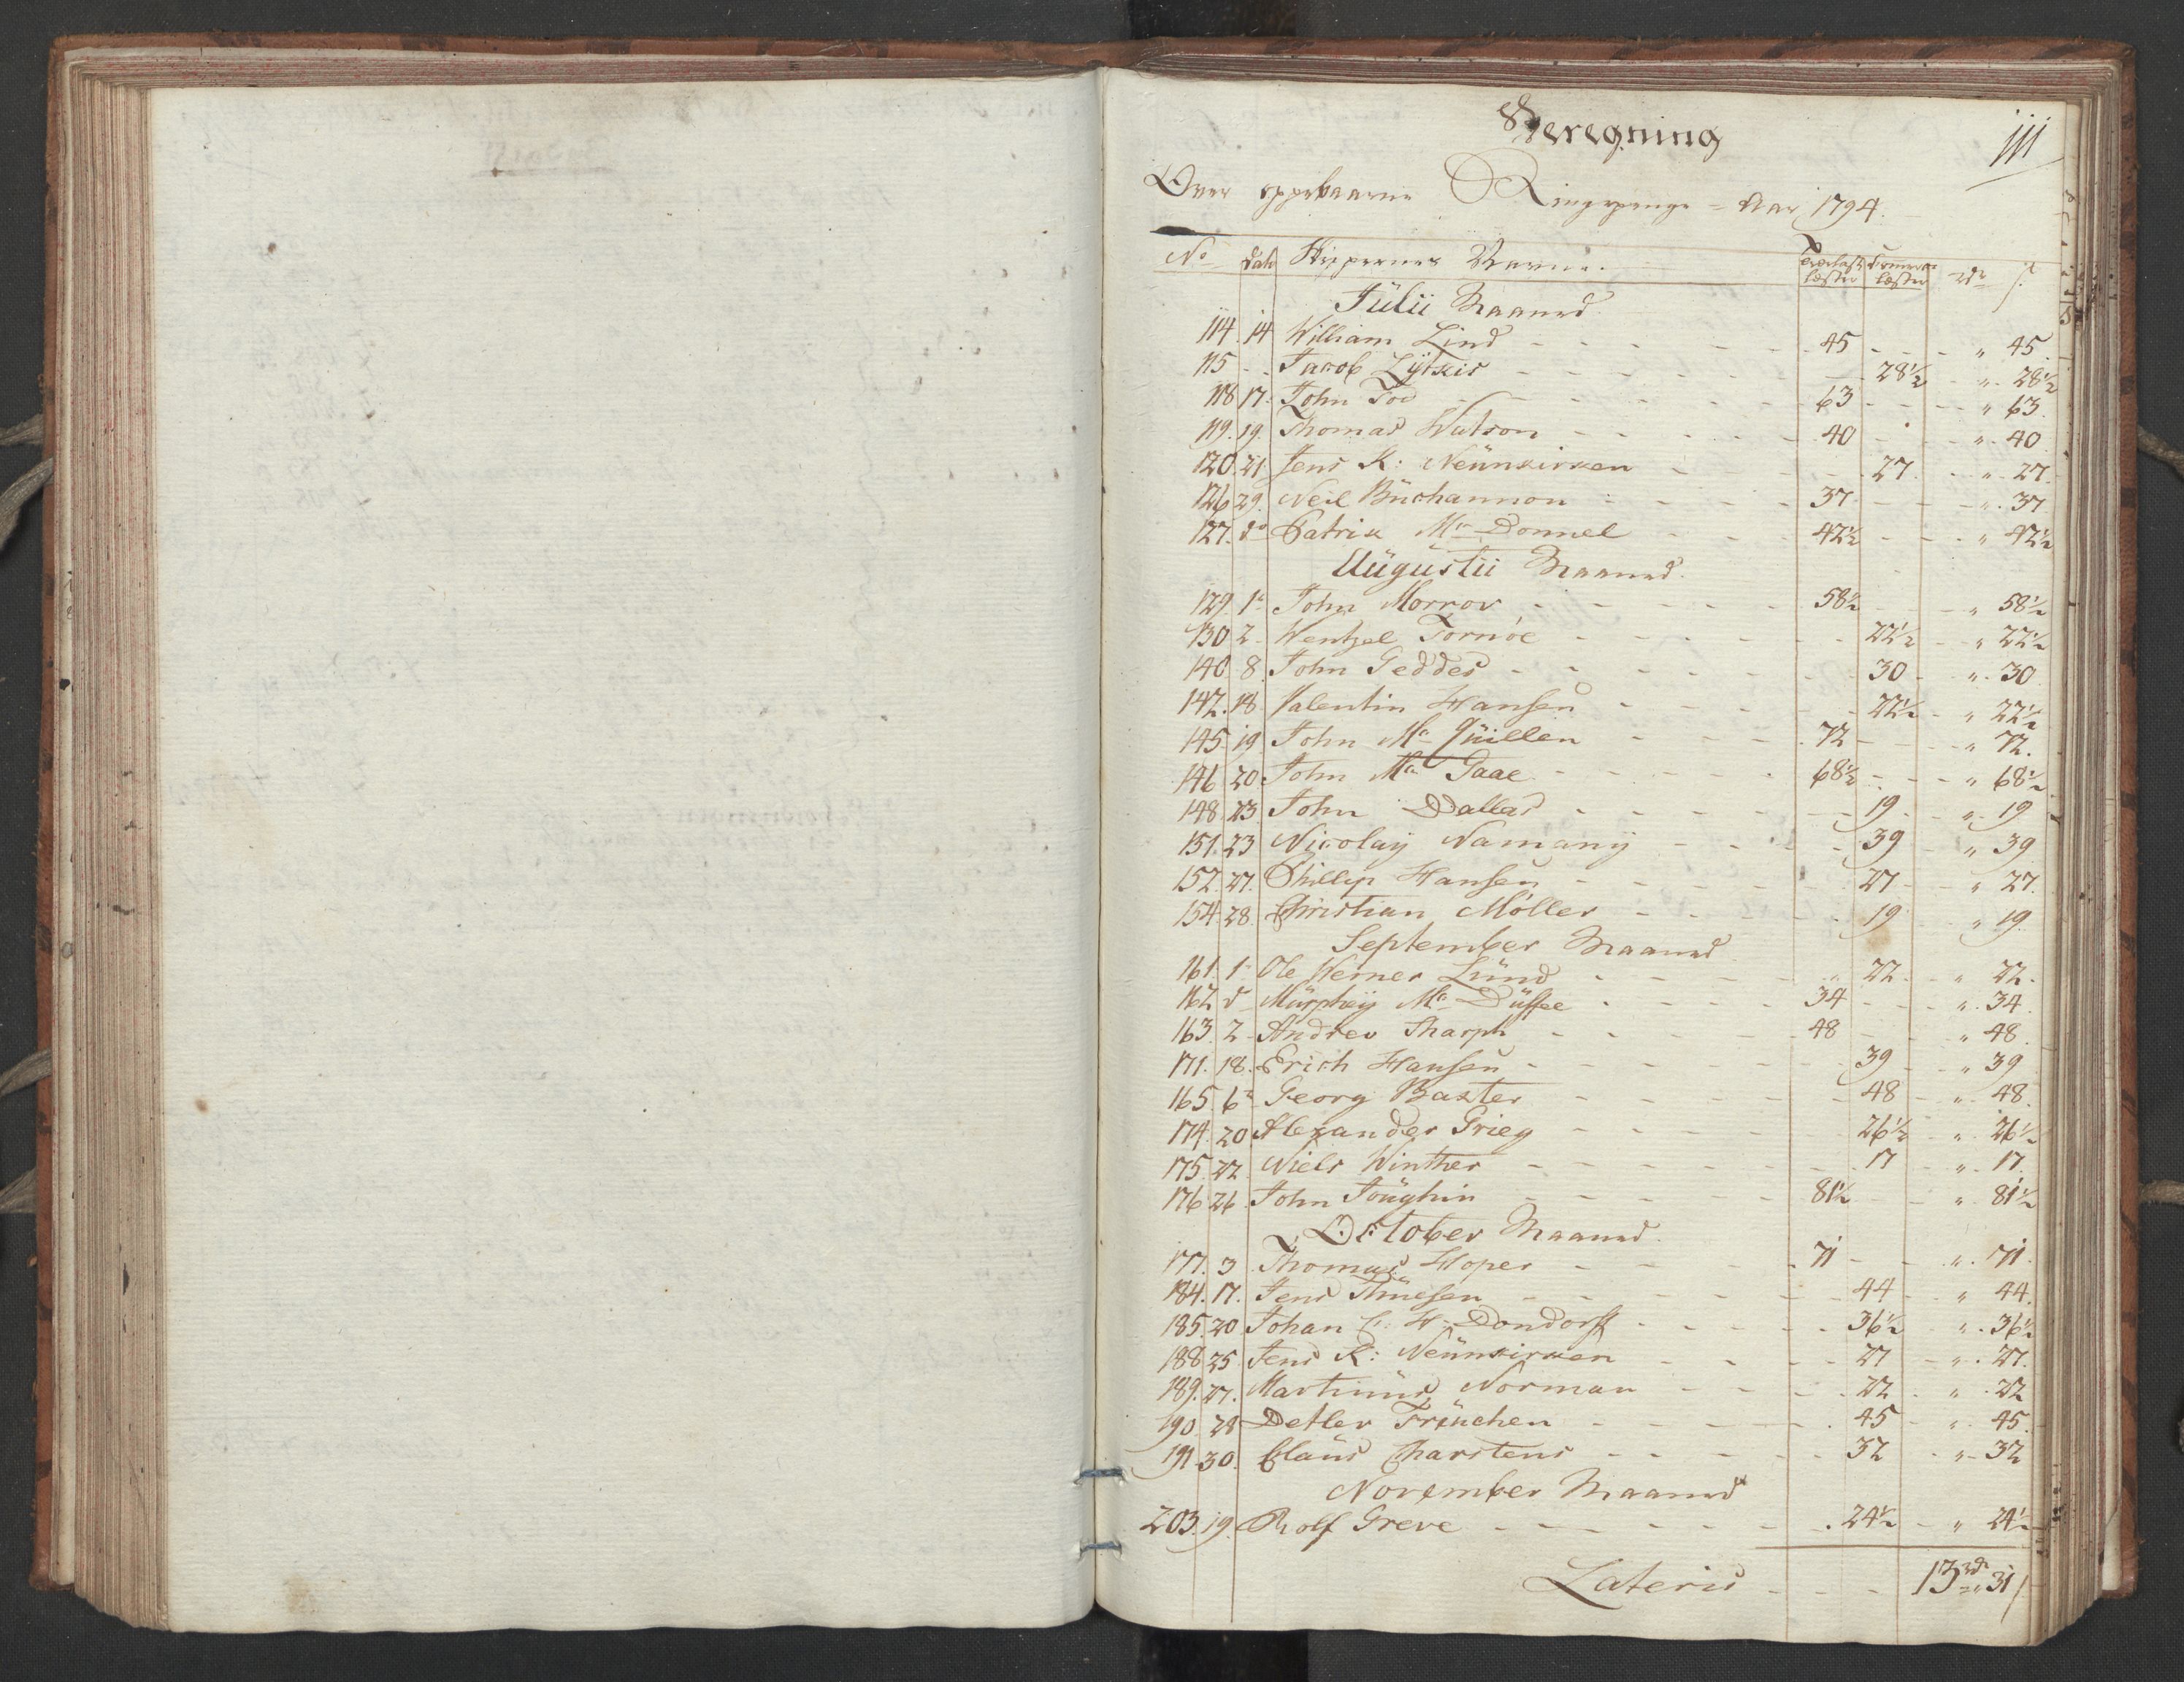 Beregning
111
Over oppebaarne Ringepenge = Aar 1794.
No Dato Skippernes Navne. læster læster rdr s.
Julii Maaned
114. 14 William Lind 45 " 45.
115 - Jacob Lytkis 28½ " 28½
118 17. John Tod 63 " 63.
119. 19. Thomas Watson 40 " 40
120. 21. Jens K: Neünkirken 27 " 27.
126 29. Neil Büchannon 37 " 37
127. do Patrik Mc Donnel 42½ " 42½
Augustii Maaned.
129. 1. John Morrov 58½ " 58½
130 2. Wentzel Fornöe 22½ " 22½
140 8. John Geddes 30 " 30
142. 18 Valentin Hansen 22½ " 22½
145 19 John Mc Qüillen 72 " 72.
146 20. John Mc Gaae 68½ " 68½
148. 23. John Dallas 19 " 19
151. 23 Nicolaÿ Namanÿ 39 " 39
152. 27. Phillip Hansen 27 " 27.
154 28. Christian Møller 19 " 19.
September Maaned
161. 1. Ole Werner Lünd 22 " 22.
162 d Mürphëy Mc Düffee 34 " 34.
163. 2 Andrev Sharph 48 " 48.
171. 18. Erich Hansen 39 " 39
165. 6. Georg Baxter 48 " 48.
174. 20 Alexander Grieg 26½ " 26½
175. 22 Niels Winther 17 " 17.
176 26 John Joüghin 81½ " 81½
October Maaned.
177. 3 Thomas Hoper 71 " 71.
184. 17. Jens Thüesen 44 " 44.
185. 20 Johan C: H: Dondorff 36½ " 36½
188 25 Jens K: Neünkirken 27 " 27.
189. 27. Martinüs Norman 22 " 22
190 28 Detlev Früchen 45 " 45.
191. 30. Claüs Charstens 32 " 32
November Maaned
203. 19. Rolf Greve 24½ " 24½
Lateris 13 rdr " 31 s